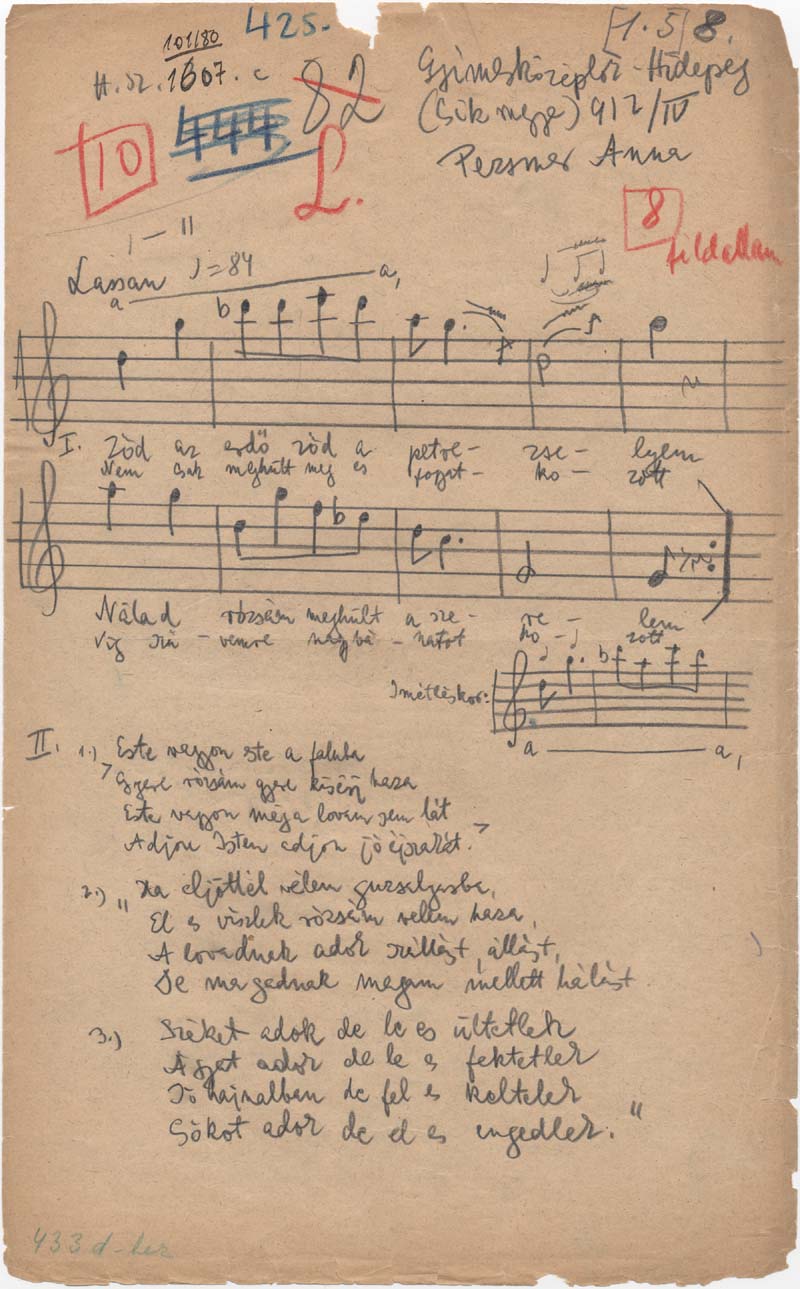 101/80
425.
[1.5] 8.
H.sz. 1607. c
82
Gyimesközéplok-Hidegség
(Csik megye) 912/IV
10
444
L.
Persner Anna
8
I-II
Lassan ♩=84
a a,
b
I. Zöd az erdő zöd a petre- zse- lyem
Nem csak meghült meg es fagyat- ko- zott
b
Nálad rózsám meghült a sze- re- lem
Víg szü- vemre nagy bá- natot ho- zott
Imétléskor:
b
a a,
II. 1.) Este vagyon este a faluba
Gyere rózsám gyere kisérj haza
Este vagyon még a lovam sem lát
Adjon Isten adjon jó éjszakát.
2.) „Ha eljöttél vélem guzsalyasba,
El es viszlek rózsám velem haza,
A lovadnak adok szállást, állást,
De magadnak magam mellett hálást.
3.) Széket adok de le es ültetlek
Ágyat adok de le es fektetlek
Jó hajnalban de fel es keltelek
Csókot adok de el es engedlek."
433 d-hez